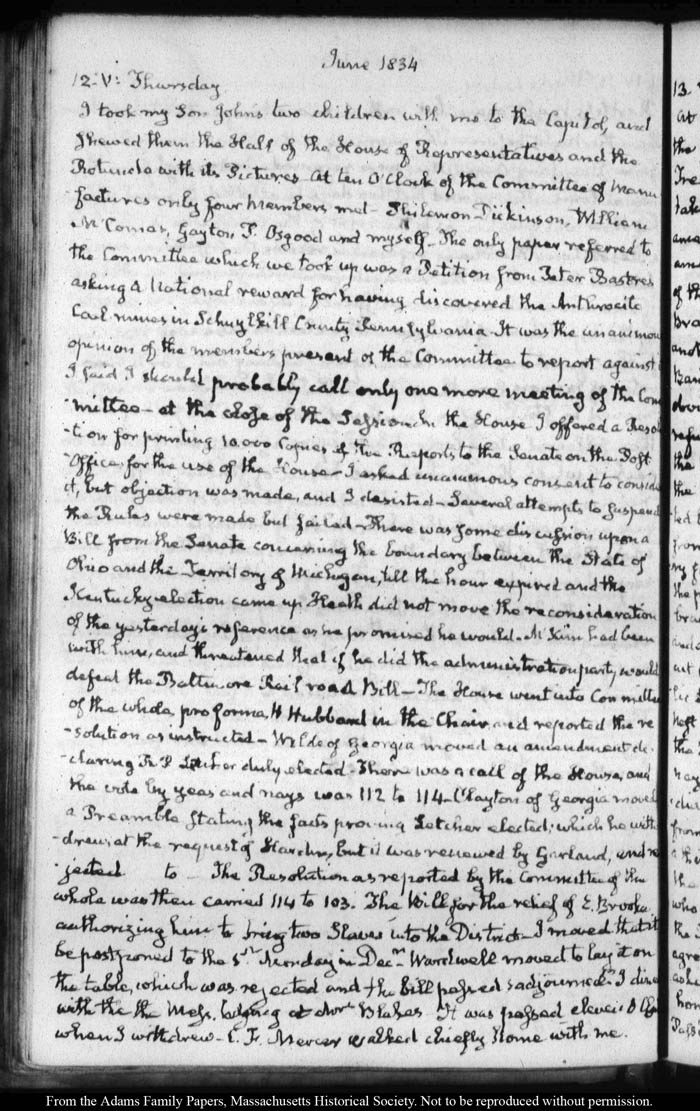 June 1834
12. V: Thursday
I took my Son John's two children with me to the Capitol, and
shewed them the Hall of the House of Representatives and the
Rotunda with its Pictures. At ten O'Clock of the Committee of Manu
factures only four members met - Philemon Dickinson, William
McComas, Gayton P. Osgood and myself - The only paper referred to
the Committee which we took up was a Petition from Peter Bastres
asking a National reward for having discovered the Anthracite
Coal mines in Schuylkill County Pennsylvania. It was the unanimou
opinion of the members present of the Committee to report against
I said I should probably call only one more meeting of the Com
mittee - at the close of the Session. In the House I offered a Resol
tion for printing 10,000 Copies of the Reports to the Senate on the Post
Office, for the use of the House - I asked unanimous consent to conside
it, but objection was made, and I desisted - Several attempts to suspend
the Rules were made but failed - There was some discussion upon a
Bill from the Senate concerning the boundary between the State of
Ohio and the Territory of Michigan, till the hour expired and the
Kentucky election came up. Heath did not move the reconsideration
of the yesterday's reference as he promised he would. McKim had been
with him, and threatened that if he did the administration party would
defeat the Baltimore Rail road Bill - The House went into Committee
of the whole, pro forma, H Hubbard in the Chair and reported the re
-solution as instructed - Wilde of Georgia moved an amendment de-
-claring R. P Letcher duly elected - There was a call of the House, and
the vote by yeas and nays was 112 to 114 - Clayton of Georgia moved
a Preamble stating the facts proving Letcher elected; which he with
-drew, at the request of Hardin, but it was renewed by Garland, and re
-jected to - The Resolution as reported by the Committee of the
whole was then carried 114 to 103. The Bill for the relief of E. Brooke
authorizing him to bring two Slaves into the District - I moved that it
be postponed to the 1st Monday in Decr. Wardwell moved to lay it on
the table, which was rejected and the bill passed adjourned. I dined
with the the Mess, lodging at - It was passed eleven O Clo
when I withdrew - C. F. Mercer walked chiefly home with me.
13.
From the Adams Family Papers, Massachusetts Historical Society. Not to be reproduced without permission.